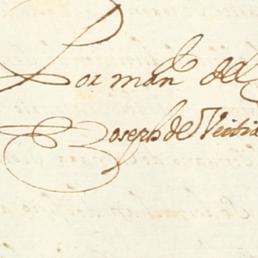 Por man.^do del
Joseph de Veitia